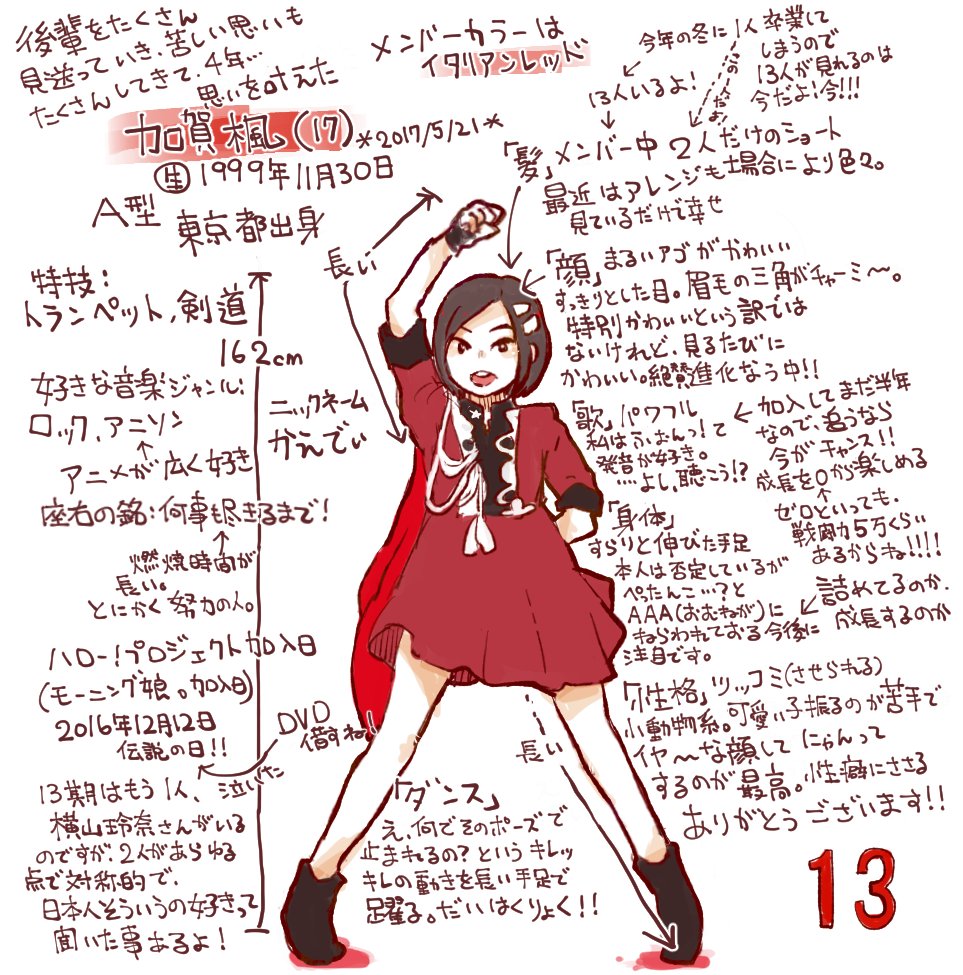 後輩をたくさん
見送っていき、苦しい思いも
たくさんしてきて、4年…
思いを叶えた
加賀楓(17)*2017/5/21*
生 1999年11月30日
A型
東京都出身
メンバーカラーは
イタリアンレッド
今年の冬に1人卒業して
しまうので
13人が見れるのは
今だよ!今!!!
13人いるよ!
「髪」メンバー中2人だけのショート
最近はアレンジも場合により色々。
見ているだけで幸せ
長い
「顔」まるいアゴがかわいい
すっきりとした目。眉毛の三角がチャーミ〜。
特別かわいいという訳では
ないけれど、見るたびに
かわいい。絶賛進化なう中!!
特技:
トランペット,剣道
162cm
好きな音楽ジャンル:
ロック,アニソン
アニメが広く好き
座右の銘:何事も尽きるまで!
燃焼時間が
長い。
とにかく努力の人。
ニックネーム
かえでぃ
「歌」パワフル
私はふぉんっ!て
発音が好き。
……よし、聴こう!?
加入してまだ半年
なので、追うなら
今がチャンス!!
成長を0から楽しめる
ゼロといっても、
戦闘力5万くらい
あるからね!!!!
「身体」
すらりと伸びた手足
本人は否定しているが
ぺったんこ…?と
AAA(おむねが)に
ねらわれておる今後に
注目です。
詰めてるのか、
成長するのか
ハロー!プロジェクト加入日
(モーニング娘。加入日)
2016年12月12日
伝説の日!!
DVD
借すね!
泣いた
「性格」ツッコミ(させられる)
小動物系。可愛い子振るのが苦手で
イヤ〜な顔して にゃんって
するのが最高。性癖にささる
ありがとうございます!!
長い
13期はもう1人、
横山玲奈さんがいる
のですが、2人があらゆる
点で対称的で、
日本人そういうの好きって
聞いた事あるよ!
「ダンス」
え、何でそのポーズで
止まれるの?というキレッ
キレの動きを長い手足で
踊る。だいはくりょく!!
13